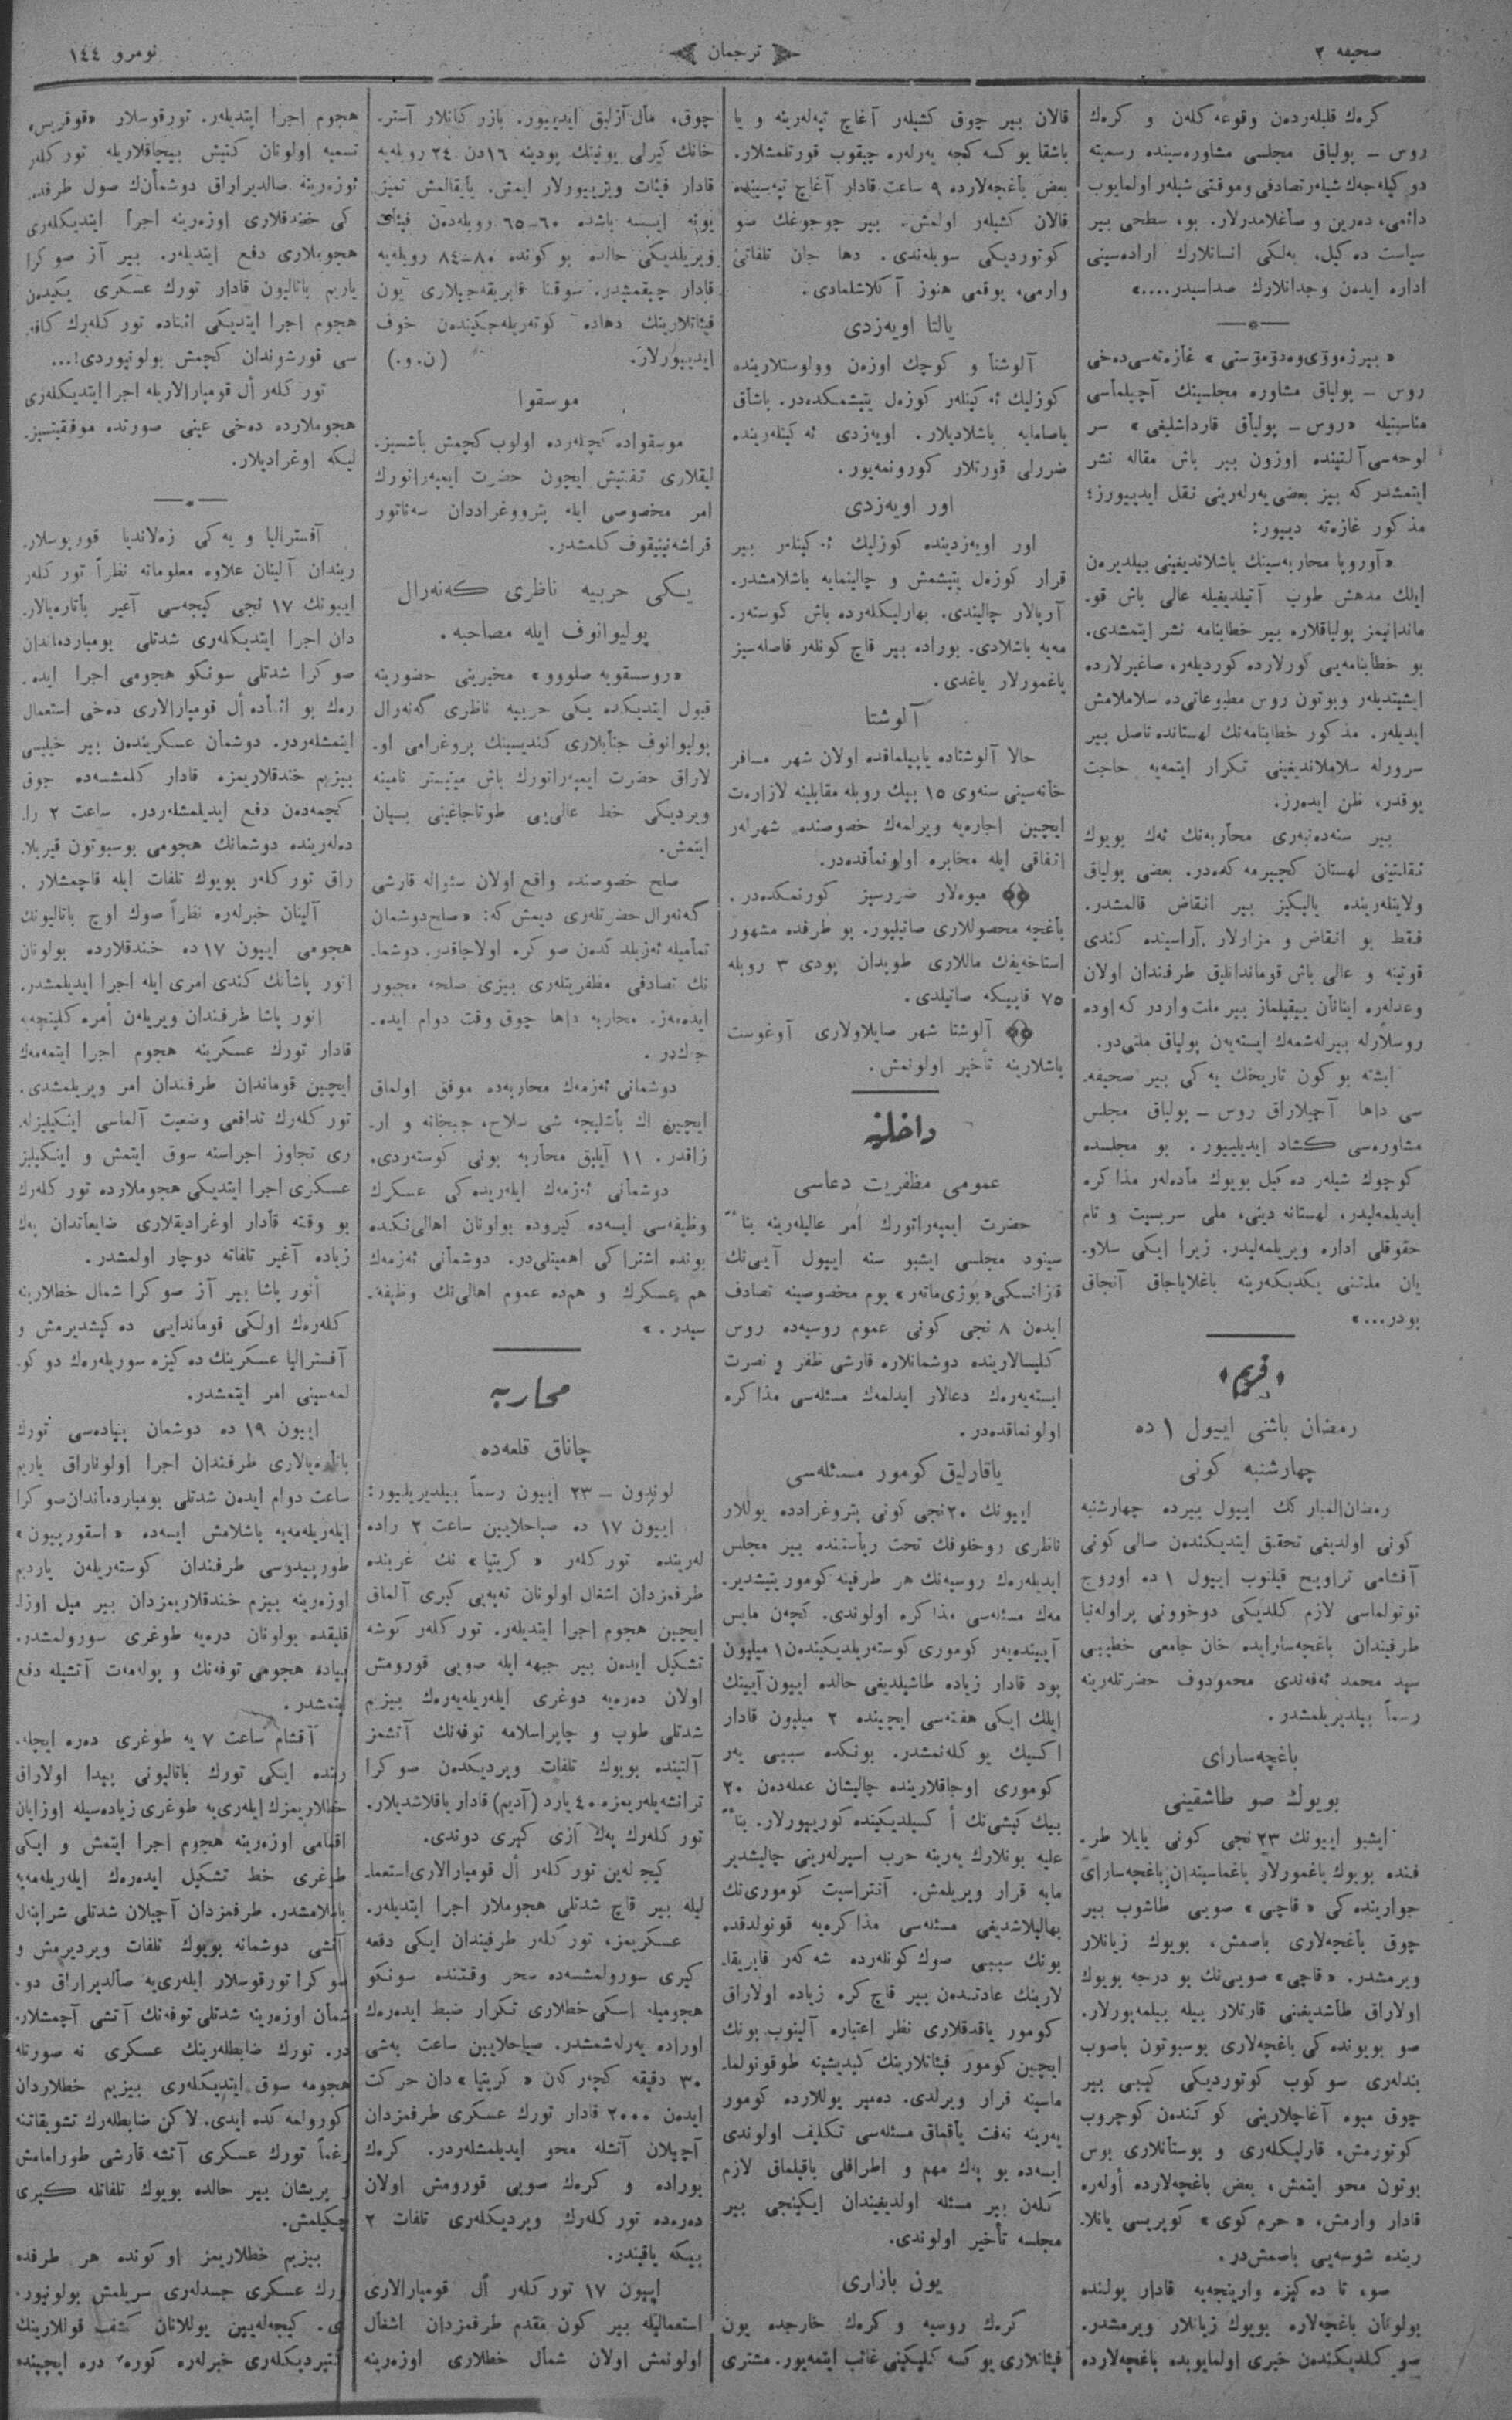 صحیفه ۲
ترجمان
نومرو ۱٤٤
كرەك قلبلەردەن وقوعه كلەن و كرەك
روس ـ پولياق مجلسی مشاورەسينده رسميته
دوكيله‌جەك شيلەر تصادفی وموقتی شيلەر اولمايوب
دائمی، دەرين و صاغلامدرلار. بو، سطحی بير
سياست دەكيل، بەلكی انسانلارك ارادەسينی
ادارە ايدەن وجدانلارك صداسيدر....»
روس ـ پولياق مشاورە مجلسينك آچيلماسی
مناسبتيله «روس ـ پولياق قارداشليغی» سر
لوحەسی آلتينده اوزون بير باش مقاله نشر
ايتمشدر كه بيز بعضی يەرلەرينی نقل ايدييورز؛
مذكور غازەته دييور:
«آوروپا محاربەسينك باشلانديغينی بيلديرەن
ايلك مدهش طوپ آتيلديغيله عالی باش قو-
ماندانيمز پولياقلارە بير خطابنامه نشر ايتمشدی.
بو خطابنامەيی كورلاردە كورديلەر، صاغيرلاردە
ايشيتديلەر وبوتون روس مطبوعاتی‌دە سلاملامش
ايديلەر. مذكور خطابنامەنك لهستاندە ناصل بير
سرورله سلاملانديغينی تكرار ايتمەيه حاجت
يوقدر، ظن ايدەرز.
بير سنەدەنبەری محاربەنك ئەك بويوك
ثقلتينی لهستان كچيرمەكدەدر. بعضی پولياق
ولايتلەريندە يالكيز بير انقاض قالمشدر.
فقط بو انقاض و مزارلار آراسيندە كندی
قوتينه و عالی باش قوماندانليق طرفندان اولان
وعدلەرە اينانان ييقيلماز بير ملت واردر كه اودە
روسلارله بيرلەشمەك ايستەيەن پولياق ملتی‌در.
ايشته بوكون تاريخك يەكی بير صحيفه-
سی داها آچيلاراق روس ـ پولياق مجلس
مشاورەسی كشاد ايديلييور. بو مجلسدە
كوچوك شيلەر دەكيل بويوك مادەلەر مذاكرە
ايديلمەليدر، لهستانه دينی، ملی سربسيت و تام
حقوقلی ادارە ويريلمەليدر. زيرا ايكی سلاو-
يان ملتنی يكديكەرينه باغلاياجاق آنجاق
بودر...»
قريم
رمضان باشی اييول ۱ دە
چهارشنبه كونی
رمضان‌المباركك اييول بيردە چهارشنبه
كونی اولديغی تحقق ايتديكندەن صالی كونی
آقشامی تراويح قيلنوب اييول ۱دە اوروج
توتولماسی لازم كلديكی دوخوونی پراولەنيا
طرفيندان باغچەسارايدە خان جامعی خطيبی
سيد محمد ئەفەندی محمودوف حضرتلەرينه
رسماً بيلديريلمشدر.
باغچەسرای
بويوك صو طاشقينی
ايشبو اييونك ۲۳نجی كونی يايلا طر-
فندە بويوك ياغمورلار ياغماسيندان باغچەسرای
جواريندە كی «قاچی» صويی طاشوب بير
چوق باغچەلاری باصمش، بويوك زيانلار
ويرمشدر. «قاچی» صويی‌نك بو درجه بويوك
اولاراق طاشديغينی قارتلار بيله بيلمەيورلار.
صو بويوندە كی باغچەلاری بوسبوتون باصوب
بندلەری سوكوب كوتورديكی كيبی بير
چوق ميوه آغاچلارينی كوكندەن كوچروب
كوتورمش، قارليكلەری و بوستانلاری بوس
بوتون محو ايتمش، بعض باغچەلاردە أولەرە
قادار وارمش، «حرم كوی» كوپريسی يانلا-
ريندە شوسەيی باصمش‌در.
صو، تا دەكيزە وارينجەيه قادار يولندە
بولونان باغچەلارە بويوك زيانلار ويرمشدر.
صو كلديكندەن خبری اولمايوبدە باغچەلاردە
قالان بير چوق كشيلەر آغاچ تپەلەرينه و يا
باشقا يوكسەكجه يەرلەرە چيقوب قورتلمشلار.
بعض باغچەلاردە ۹ ساعت قادار آغاچ تپەسيندە
قالان كشيلەر اولمش. بير چوجوغك صو
كوتورديكی سويلەندی. دها جان تلفاتی
وارمی، يوقمی هنوز آكلاشلمادی.
يالتا اويەزدی
آلوشتا و كوچك اوزەن وولوستلاريندە
كوزليك ئەكينلەر كوزەل يتيشمكدەدر. باشاق
ياصامايه باشلاديلار. اويەزدی ئەكينلەريندە
ضررلی قورتلار كورونمەيور.
اور اويەزدی
اور اويەزديندە كوزليك ئەكينلەر بير
قرار كوزەل يتيشمش و چالينمايه باشلامشدر.
آرپالار چاليندی. بهارليكلەردە باش كوستەر-
مەيه باشلادی. بورادە بير قاچ كونلەر فاصلەسيز
ياغمورلار ياغدی.
آلوشتا
حالا آلوشتادە ياپيلماقدە اولان شهر مسافر
خانەسينی سنەوی ۱٥ بيك روبله مقابلينه لازارەت
ايچين اجارەيه ويرلمەك خصوصندە شهرلەر
اتفاقی ايله مخابرە اولونماقدەدر.
ميوەلار ضررسيز كورنمكدەدر.
باغچه محصوللاری صاتيليور. بو طرفدە مشهور
استاخەيەفك ماللاری طوپدان پودی ۳ روبله
۷٥ قاپيكه صاتيلدی.
آلوشتا شهر صايلاولاری آوغوست
باشلارينه تأخير اولونمش.
داخليه
عمومی مظفريت دعاسی
حضرت ايمپەراتورك امر عاليلەرينه بناً
سينود مجلسی ايشبو سنه اييول آيی‌نك
قازانسكی «بوژی‌ماتەر» يوم مخصوصينه تصادف
ايدەن ۸ نجی كونی عموم روسيەدە روس
كليسالاريندە دوشمانلارە قارشی ظفر و نصرت
ايستەيەرەك دعالار ايدلمەك مسئلەسی مذاكرە
اولونماقدەدر.
ياقارليق كومور مسئلەسی
اييونك ۲۰نجی كونی پتروغرادده يوللار
ناظری روخلوفك تحت رياستندە بير مجلس
ايديلەرەك روسيەنك هر طرفينه كومور يتيشدير-
مەك مسئلەسی مذاكرە اولوندی. كچەن مايس
آييندەبەر كوموری كوستەريلديكيندەن ۱ ميليون
پود قادار زيادە طاشيلديغی حالدە اييون آيينك
ايلك ايكی هفتەسی ايچيندە ۲ ميليون قادار
اكسيك يوكلەنمشدر. بونكدە سببی يەر
كوموری اوجاقلاريندە چاليشان عملەدەن ۲۰
بيك كيشی‌نك أكسيلديكيندە كورييورلار. بناً
عليه بونلارك يەرينه حرب اسيرلەرينی چاليشدير
مايه قرار ويريلمش. آنتراسيت كوموری‌نك
بهاليلاشديغی مسئلەسی مذاكرەيه قونولدقدە
بونك سببی صوك كونلەردە شەكەر فابريقا-
لارينك عادتدەن بير قاچ كرە زيادە اولاراق
كومور ياقدقلاری نظر اعتبارە آلينوب بونك
ايچين كومور فيئاتلارينك كيديشينه طوقونولما-
ماسينه قرار ويرلدی. دەمير يوللاردە كومور
يەرينه نەفت ياقماق مسئلەسی تكليف اولوندی
ايسەدە بو پەك مهم و اطرافلی باقيلماق لازم
كلەن بير مسئله اولديغيندان ايكينجی بير
مجلسه تأخير اولوندی.
يون بازاری
كرەك روسيه و كرەك خارجدە يون
فيئاتلاری يوكسەكليكينی غائب ايتمەيور. مشتری
چوق، مال آزليق ايدييور. بازركانلار آستر-
خانك كيرلی يونينك پودينه ۱٦دن ۲٤ روبلەيه
قادار فيئات ويرييورلار ايمش. يايقالمش تميز
يونه ايسه باشدە ٦۰ـ٦٥ روبلەدەن فيئات
ويريلديكی حالدە بوكوندە ۸۰ـ۸٤ روبلەيه
قادار چيقمشدر. سوقنا فابريقەجيلاری يون
فيئاتلارينك دهادە كوتەريلەجكيندەن خوف
ايدييورلار.
(ن. و.)
موسقوا
موسقوادە كچلەردە اولوب كچمش باشسيز-
ليقلاری تفتيش ايچون حضرت ايمپەراتورك
امر مخصوصی ايله پتروغراددان سەناتور
قراشەنينيقوف كلمشدر.
يكی حربيه ناظری كەنەرال
پوليوانوف ايله مصاحبه.
«روسسقويه صلووو» مخبرينی حضورينه
قبول ايتديكدە يكی حربيه ناظری گەنەرال
پوليوانوف جنابلاری كنديسينك پروغرامی او-
لاراق حضرت ايمپەراتورك باش مينيستر نامينه
ويرديكی خط عالی‌يی طوتاجاغينی بيان
ايتمش.
صلح خصوصندە واقع اولان سئواله قارشی
گەنەرال حضرتلەری ديمش كه: «صلح دوشمان
تماميله ئەزيلدكدەن صوكرە اولاجاقدر. دوشما-
نك تصادفی مظفريتلەری بيزی صلحه مجبور
ايدەمەز. محاربه داها چوق وقت دوام ايدە-
جەكدر.
دوشمانی ئەزمەك محاربەدە موفق اولماق
ايچين اك باشليجه شی سلاح، جبخانه و ار-
زاقدر. ۱۱ آيليق محاربه بونی كوستەردی.
دوشمانی ئەزمەك ايلەريدەكی عسكرك
وظيفەسی ايسەدە كيرودە بولونان اهالی‌نكدە
بوندە اشتراكی اهميتلی‌در. دوشمانی ئەزمەك
هم عسكرك و هم‌دە عموم اهالی‌نك وظيفه-
سيدر.»
محاربه
چاناق قلعەدە
لوندون ـ ۲۳ اييون رسماً بيلديريلييور:
اييون ۱۷ دە صباحلايين ساعت ۲ رادە
لەريندە توركلەر «كريتيا» نك غربندە
طرفمزدان اشغال اولونان تەپەيی كيری آلماق
ايچين هجوم اجرا ايتديلەر. توركلەر كوشه
تشكيل ايدەن بير جبهه ايله صويی قورومش
اولان دەرەيه دوغری ايلەريلەيەرەك بيزيم
شدتلی طوپ و چاپراسلامه توفەنك آتشمز
آلتيندە بويوك تلفات ويرديكدەن صوكرا
ترانشەيلەريمزە ٤۰ يارد (آديم) قادار ياقلاشديلار.
توركلەرك پەك آزی كيری دوندی.
كيجەلەين توركلەر أل قومبارالاری استعما-
ليله بير قاچ شدتلی هجوملار اجرا ايتديلەر.
عسكريمز، توركلەر طرفيندان ايكی دفعه
كيری سورولمشسەدە سحر وقتندە سونكو
هجوميله اسكی خطلاری تكرار ضبط ايدەرەك
اورادە يەرلەشمشدر. صباحلايين ساعت بەشی
۳۰ دقيقه كچەركەن «كريتيا» دان حركت
ايدەن ۲۰۰۰ قادار تورك عسكری طرفمزدان
آچيلان آتشله محو ايديلمشلەردر. كرەك
بورادە و كرەك صويی قورومش اولان
دەرەدە توركلەرك ويرديكلەری تلفات ۲
بيكه ياقيندر.
اييون ۱۷ توركلەر أل قومبارالاری
استعماليله بير كون مقدم طرفمزدان اشغال
اولونمش اولان شمال خطلاری اوزەرينه
هجوم اجرا ايتديلەر. تورقوسلار «قوقريس»
تسميه اولونان كنيش بيچاقلاريله توركلەر
ئوزەرينه صالديراراق دوشمانك صول طرفدە-
كی خندقلاری اوزەرينه اجرا ايتديكلەری
هجوملاری دفع ايتديلەر. بير آز صوكرا
ياريم باتاليون قادار تورك عسكری يكيدەن
هجوم اجرا ايتديكی اثنادە توركلەرك كافه-
سی قورشوندان كچمش بولونيوردی!...
توركلەر أل قومبارالاريله اجرا ايتديكلەری
هجوملاردە دەخی عينی صورتدە موفقيتسيز-
ليكه اوغراديلار.
آفسترالیا و يەكی زەلانديا قورپوسلار-
ريندان آلينان علاوه معلوماته نظراً توركلەر
اييونك ۱۷ نجی كيجەسی آغير باتارەيالار-
دان اجرا ايتديكلەری شدتلی بومباردەماندان
صوكرا شدتلی سونكو هجومی اجرا ايدە-
رەك بو اثنادە أل قومبارالاری دەخی استعمال
ايتمشلەردر. دوشمان عسكريندەن بير خيليسی
بيزيم خندقلاريمزە قادار كلمشسەدە چوق
كچمەدەن دفع ايديلمشلەردر. ساعت ۲ را-
دەلەريندە دوشمانك هجومی بوسبوتون قيريلا-
راق توركلەر بويوك تلفات ايله قاچمشلار.
آلينان خبرلەرە نظراً صوك اوچ باتاليونك
هجومی اييون ۱۷دە خندقلاردە بولونان
انور پاشانك كندی امری ايله اجرا ايديلمشدر.
انور پاشا طرفندان ويريلەن أمرە كلينجه
قادار تورك عسكرينه هجوم اجرا ايتمەمەك
ايچين قوماندان طرفندان امر ويريلمشدی.
توركلەرك تدافعی وضعيت آلماسی اينكيليزلە-
ری تجاوز اجراسنه سوق ايتمش و اينكيليز
عسكری اجرا ايتديكی هجوملاردە توركلەرك
بو وقته قادار اوغراديقلاری ضايعاتدان پەك
زيادە آغير تلفاته دوچار اولمشدر.
أنور پاشا بير آز صوكرا شمال خطلارينه
كلەرەك اولكی قوماندايی دەكيشديرمش و
آفستراليا عسكرينك دەكيزە سوريلەرەك دوكو-
لمەسينی امر ايتمشدر.
اييون ۱۹ دە دوشمان پيادەسی تورك
باتارەيالاری طرفندان اجرا اولوناراق ياريم
ساعت دوام ايدەن شدتلی بومباردەماندان صوكرا
ايلەريلەمەيه باشلامش ايسەدە «اسقورپيون»
طورپيدوسی طرفندان كوستەريلەن يارديم
اوزەرينه بيزيم خندقلاريمزدان بير ميل اوزا-
قليقدە بولونان درەيه طوغری سورولمشدر.
پيادە هجومی توفەنك و پولەمەت آتشيله دفع
ايتمشدر.
آقشام ساعت ۷ يه طوغری دەرە ايچلە-
ريندە ايكی تورك باتاليونی پيدا اولاراق
خطلاريمزك ايلەری‌يه طوغری زيادەسيله اوزايان
اقسامی اوزەرينه هجوم اجرا ايتمش و ايكی
طوغری خط تشكيل ايدەرەك ايلەريلەمەيه
باشلامشدر. طرفمزدان آچيلان شدتلی شراپنەل
آتشی دوشمانه بويوك تلفات ويرديرمش و
صوكرا تورقوسلار ايلەری‌يه صالديراراق دو-
شمان اوزەرينه شدتلی توفەنك آتشی آچمشلار-
در. تورك ضابطلەرينك عسكری نه صورتله
هجومه سوق ايتديكلەری بيزيم خطلاردان
كورولمەكدە ايدی. لاكن ضابطلەرك تشويقاتنه
رغماً تورك عسكری آتشه قارشی طورامامش
و پريشان بير حالدە بويوك تلفاتله كيری
چكيلمش.
بيزيم خطلاريمز اوكوندە هر طرفدە
تورك عسكری جسدلەری سريلمش بولونيور-
دی. كيجەلەيين يوللانان كشف قوللارينك
كتيرديكلەری خبرلەرە كورە، درە ايچيندە